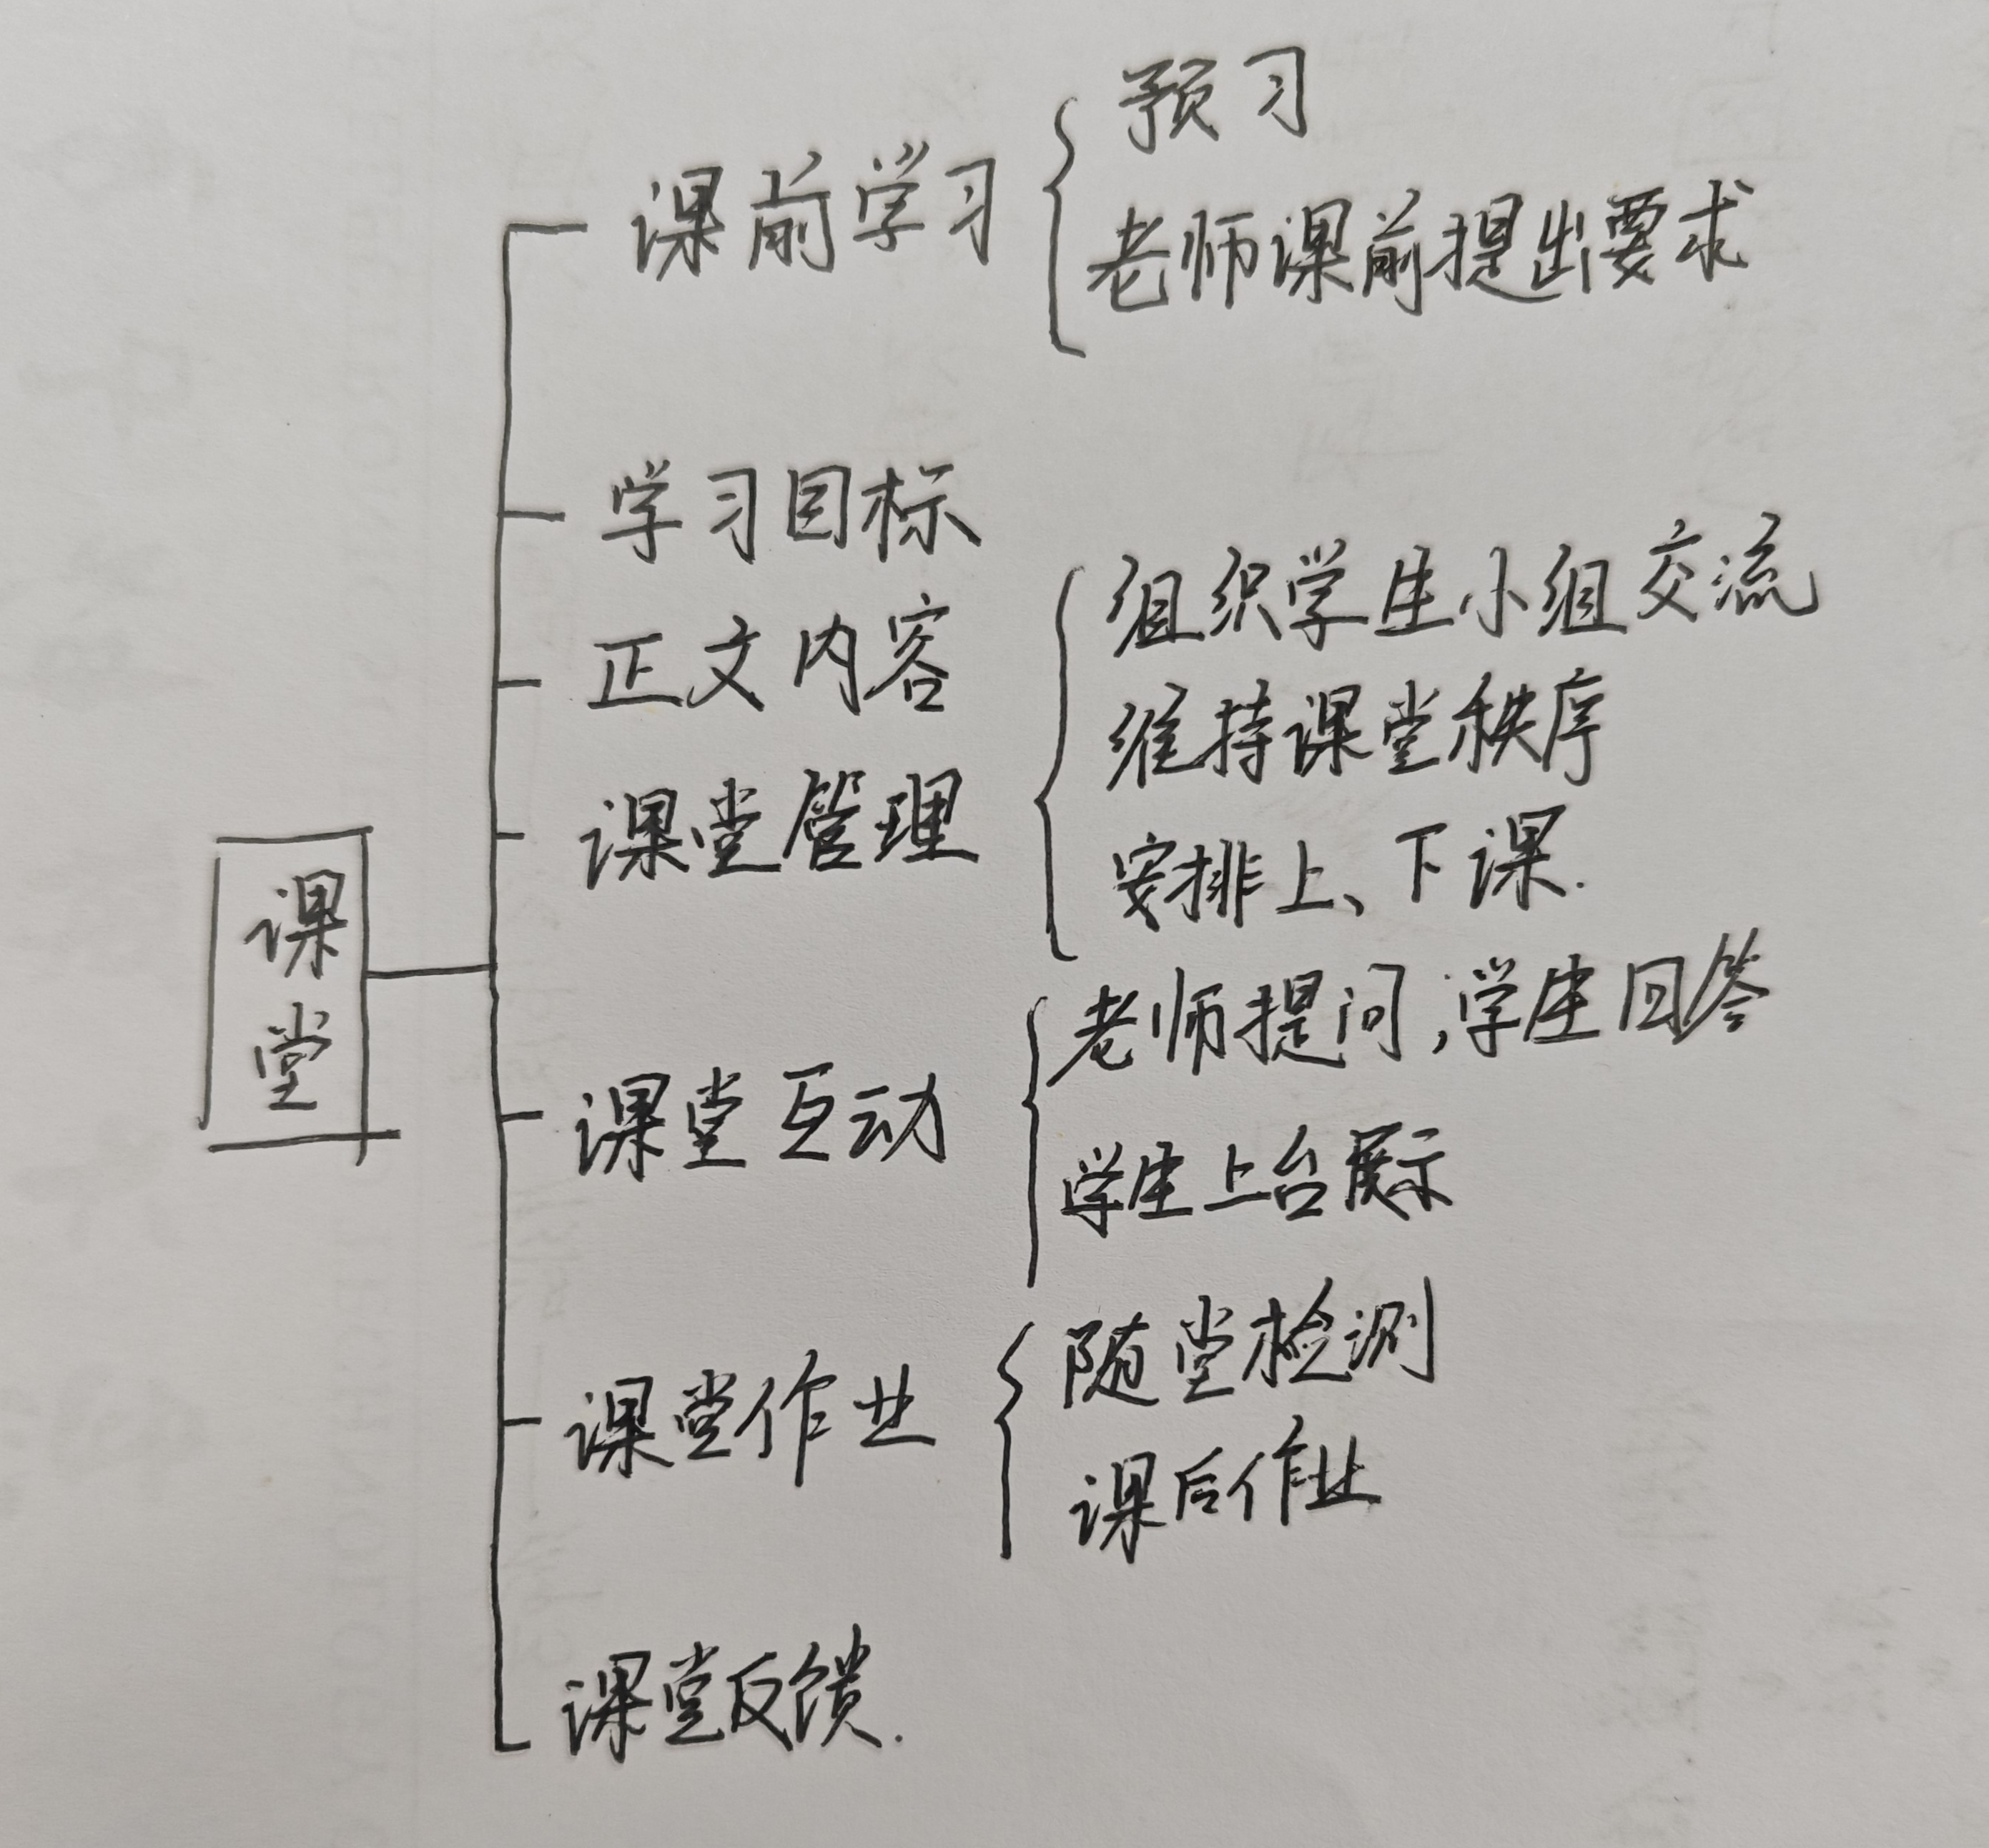 课堂
课前学习
预习
老师课前提出要求
学习目标
正文内容
课堂管理
组织学生小组交流
维持课堂秩序
安排上、下课.
课堂互动
老师提问,学生回答
学生上台展示
课堂作业
随堂检测
课后作业
课堂反馈.